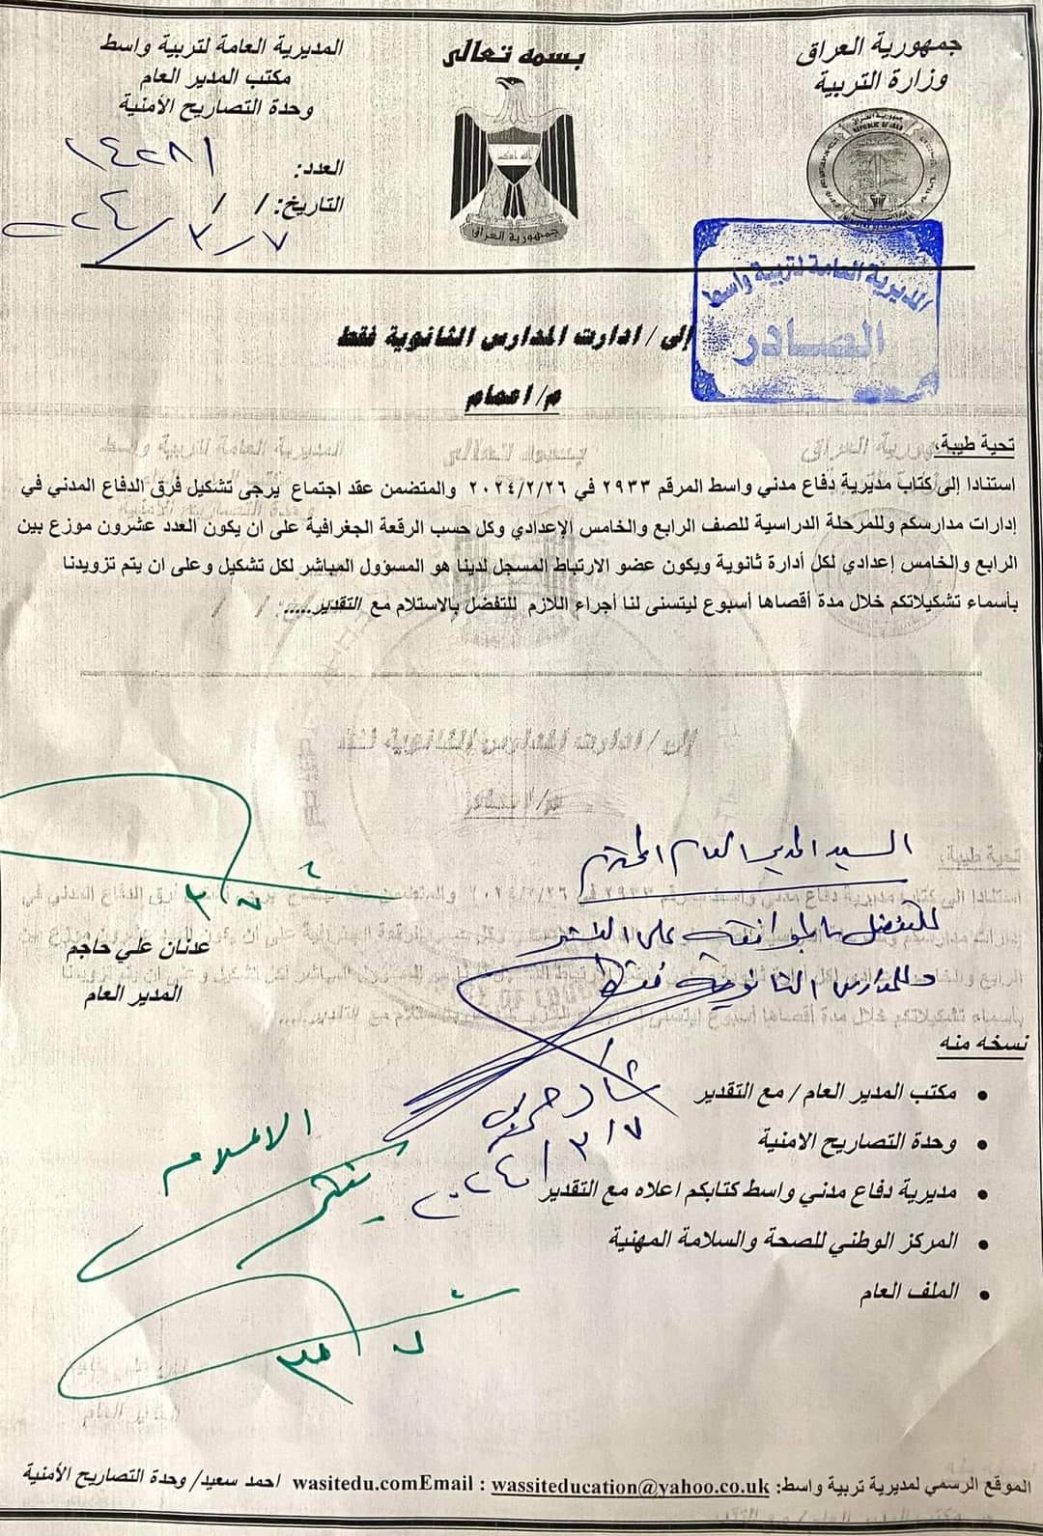 جمهورية العراق
وزارة التربية
بسمه تعالى
المديرية العامة لتربية واسط
مكتب المدير العام
وحدة التصاريح الأمنية
العدد: ١٤٢٨١
التاريخ: / /
٢٠٢٤/٣/٧
جمهورية العراق
المديرية العامة لتربية واسط
الصادر
إلى / ادارت المدارس الثانوية فقط
م/ اعمام
تحية طيبة،
استنادا إلى كتاب مديرية دفاع مدني واسط المرقم ٢٩٣٣ في ٢٠٢٤/٢/٢٦ والمتضمن عقد اجتماع يرجى تشكيل فرق الدفاع المدني في
إدارات مدارسكم وللمرحلة الدراسية للصف الرابع والخامس الإعدادي وكل حسب الرقعة الجغرافية على ان يكون العدد عشرون موزع بين
الرابع والخامس إعدادي لكل أدارة ثانوية ويكون عضو الارتباط المسجل لدينا هو المسؤول المباشر لكل تشكيل وعلى ان يتم تزويدنا
بأسماء تشكيلاتكم خلال مدة أقصاها أسبوع ليتسنى لنا أجراء اللازم للتفضل بالاستلام مع التقدير.....
السيد المدير العام المحترم
للتفضل بالموافقة على النشر
وللمدارس الثانوية فقط
٢٠٢٤/٣/٧
٣/٧
عدنان علي حاجم
المدير العام
نسخه منه
• مكتب المدير العام / مع التقدير
• وحدة التصاريح الامنية
• مديرية دفاع مدني واسط كتابكم اعلاه مع التقدير
• المركز الوطني للصحة والسلامة المهنية
• الملف العام
الاعلام
ينشر
٣/٧
الموقع الرسمي لمديرية تربية واسط: wasitedu.comEmail : wassiteducation@yahoo.co.uk احمد سعيد/ وحدة التصاريح الأمنية